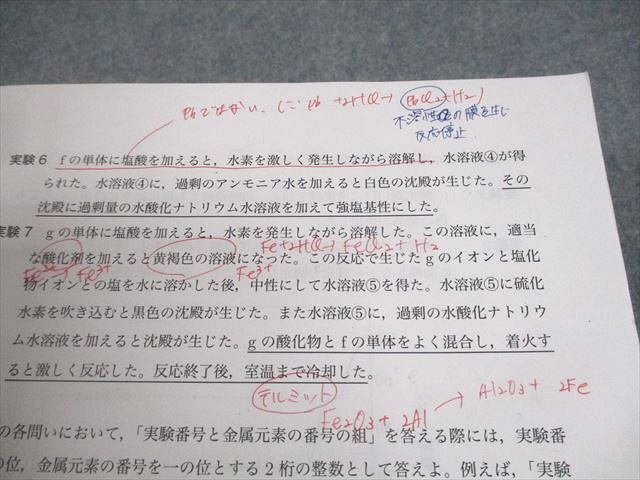 Pbではない. (∵ Pb + 2HCl → PbCl2 + H2)
不溶性の膜を生じ
反応停止.
実験6 fの単体に塩酸を加えると，水素を激しく発生しながら溶解し，水溶液④が得
られた。水溶液④に，過剰のアンモニア水を加えると白色の沈殿が生じた。その
沈殿に過剰量の水酸化ナトリウム水溶液を加えて強塩基性にした。
実験7 gの単体に塩酸を加えると，水素を発生しながら溶解した。この溶液に，適当
Fe+2HCl→ FeCl2 + H2
な酸化剤を加えると黄褐色の溶液になった。この反応で生じたgのイオンと塩化
Fe2+ → Fe3+
Fe3+
物イオンとの塩を水に溶かした後，中性にして水溶液⑤を得た。水溶液⑤に硫化
水素を吹き込むと黒色の沈殿が生じた。また水溶液⑤に，過剰の水酸化ナトリウ
ム水溶液を加えると沈殿が生じた。gの酸化物とfの単体をよく混合し，着火す
ると激しく反応した。反応終了後，室温まで冷却した。
テルミット
Fe2O3 + 2Al → Al2O3 + 2Fe
の各問いにおいて，「実験番号と金属元素の番号の組」を答える際には，実験番
の位，金属元素の番号を一の位とする2桁の整数として答えよ。例えば，「実験